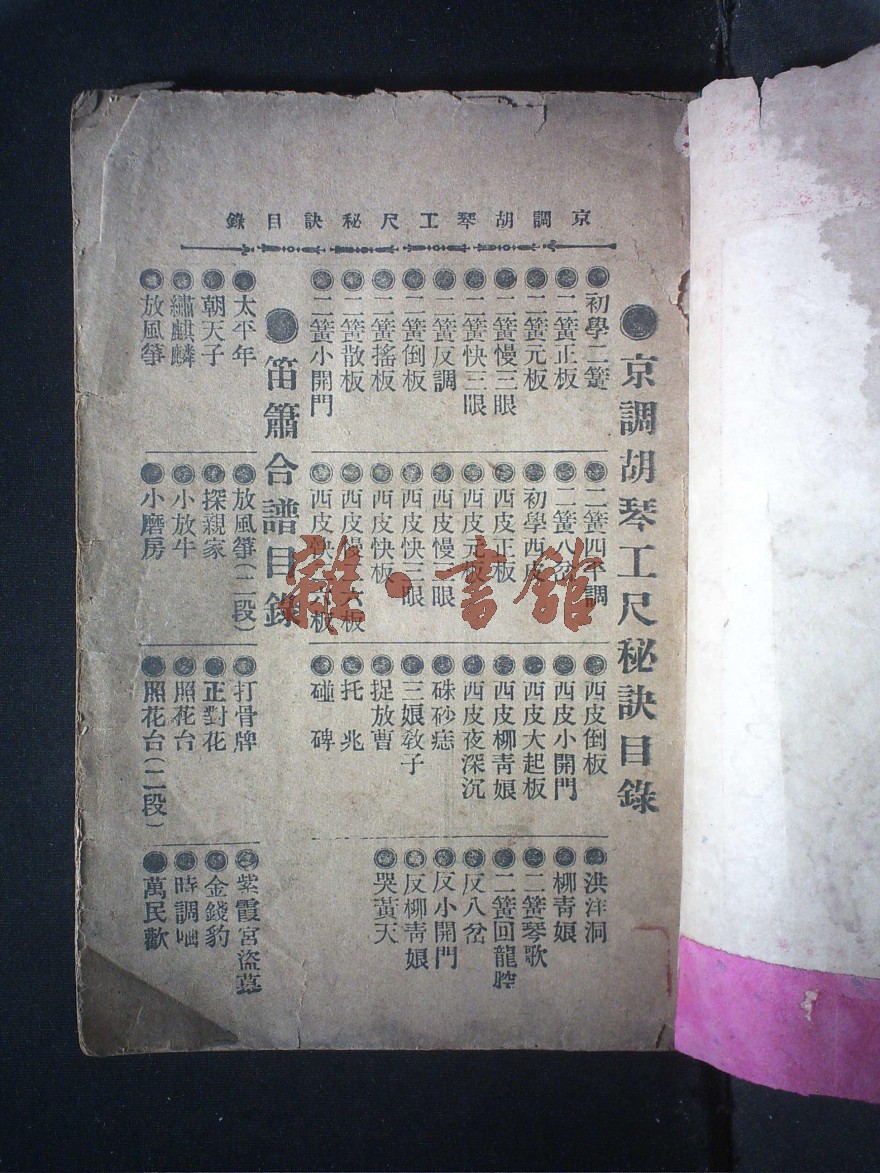 京調胡琴工尺秘訣目錄
京調胡琴工尺秘訣目錄
初學二簧
二簧正板
二簧元板
二簧慢三眼
二簧快三眼
二簧反調
二簧倒板
二簧搖板
二簧散板
二簧小開門
二簧四平調
二簧八岔
初學西皮
西皮正板
西皮元板
西皮慢三眼
西皮快三眼
西皮快板
西皮慢六板
西皮快六板
西皮倒板
西皮小開門
西皮大起板
西皮柳靑娘
西皮夜深沉
硃砂痣
三娘敎子
捉放曹
托兆
碰碑
洪洋洞
柳靑娘
二簧琴歌
二簧回龍腔
反八岔
反小開門
反柳靑娘
哭黃天
笛簫合譜目錄
太平年
朝天子
繡麒麟
放風箏
放風箏(二段)
探親家
小放牛
小磨房
打骨牌
正對花
照花台
照花台(二段)
紫霞宮盜墓
金錢豹
時調
萬民歡
雜·書館